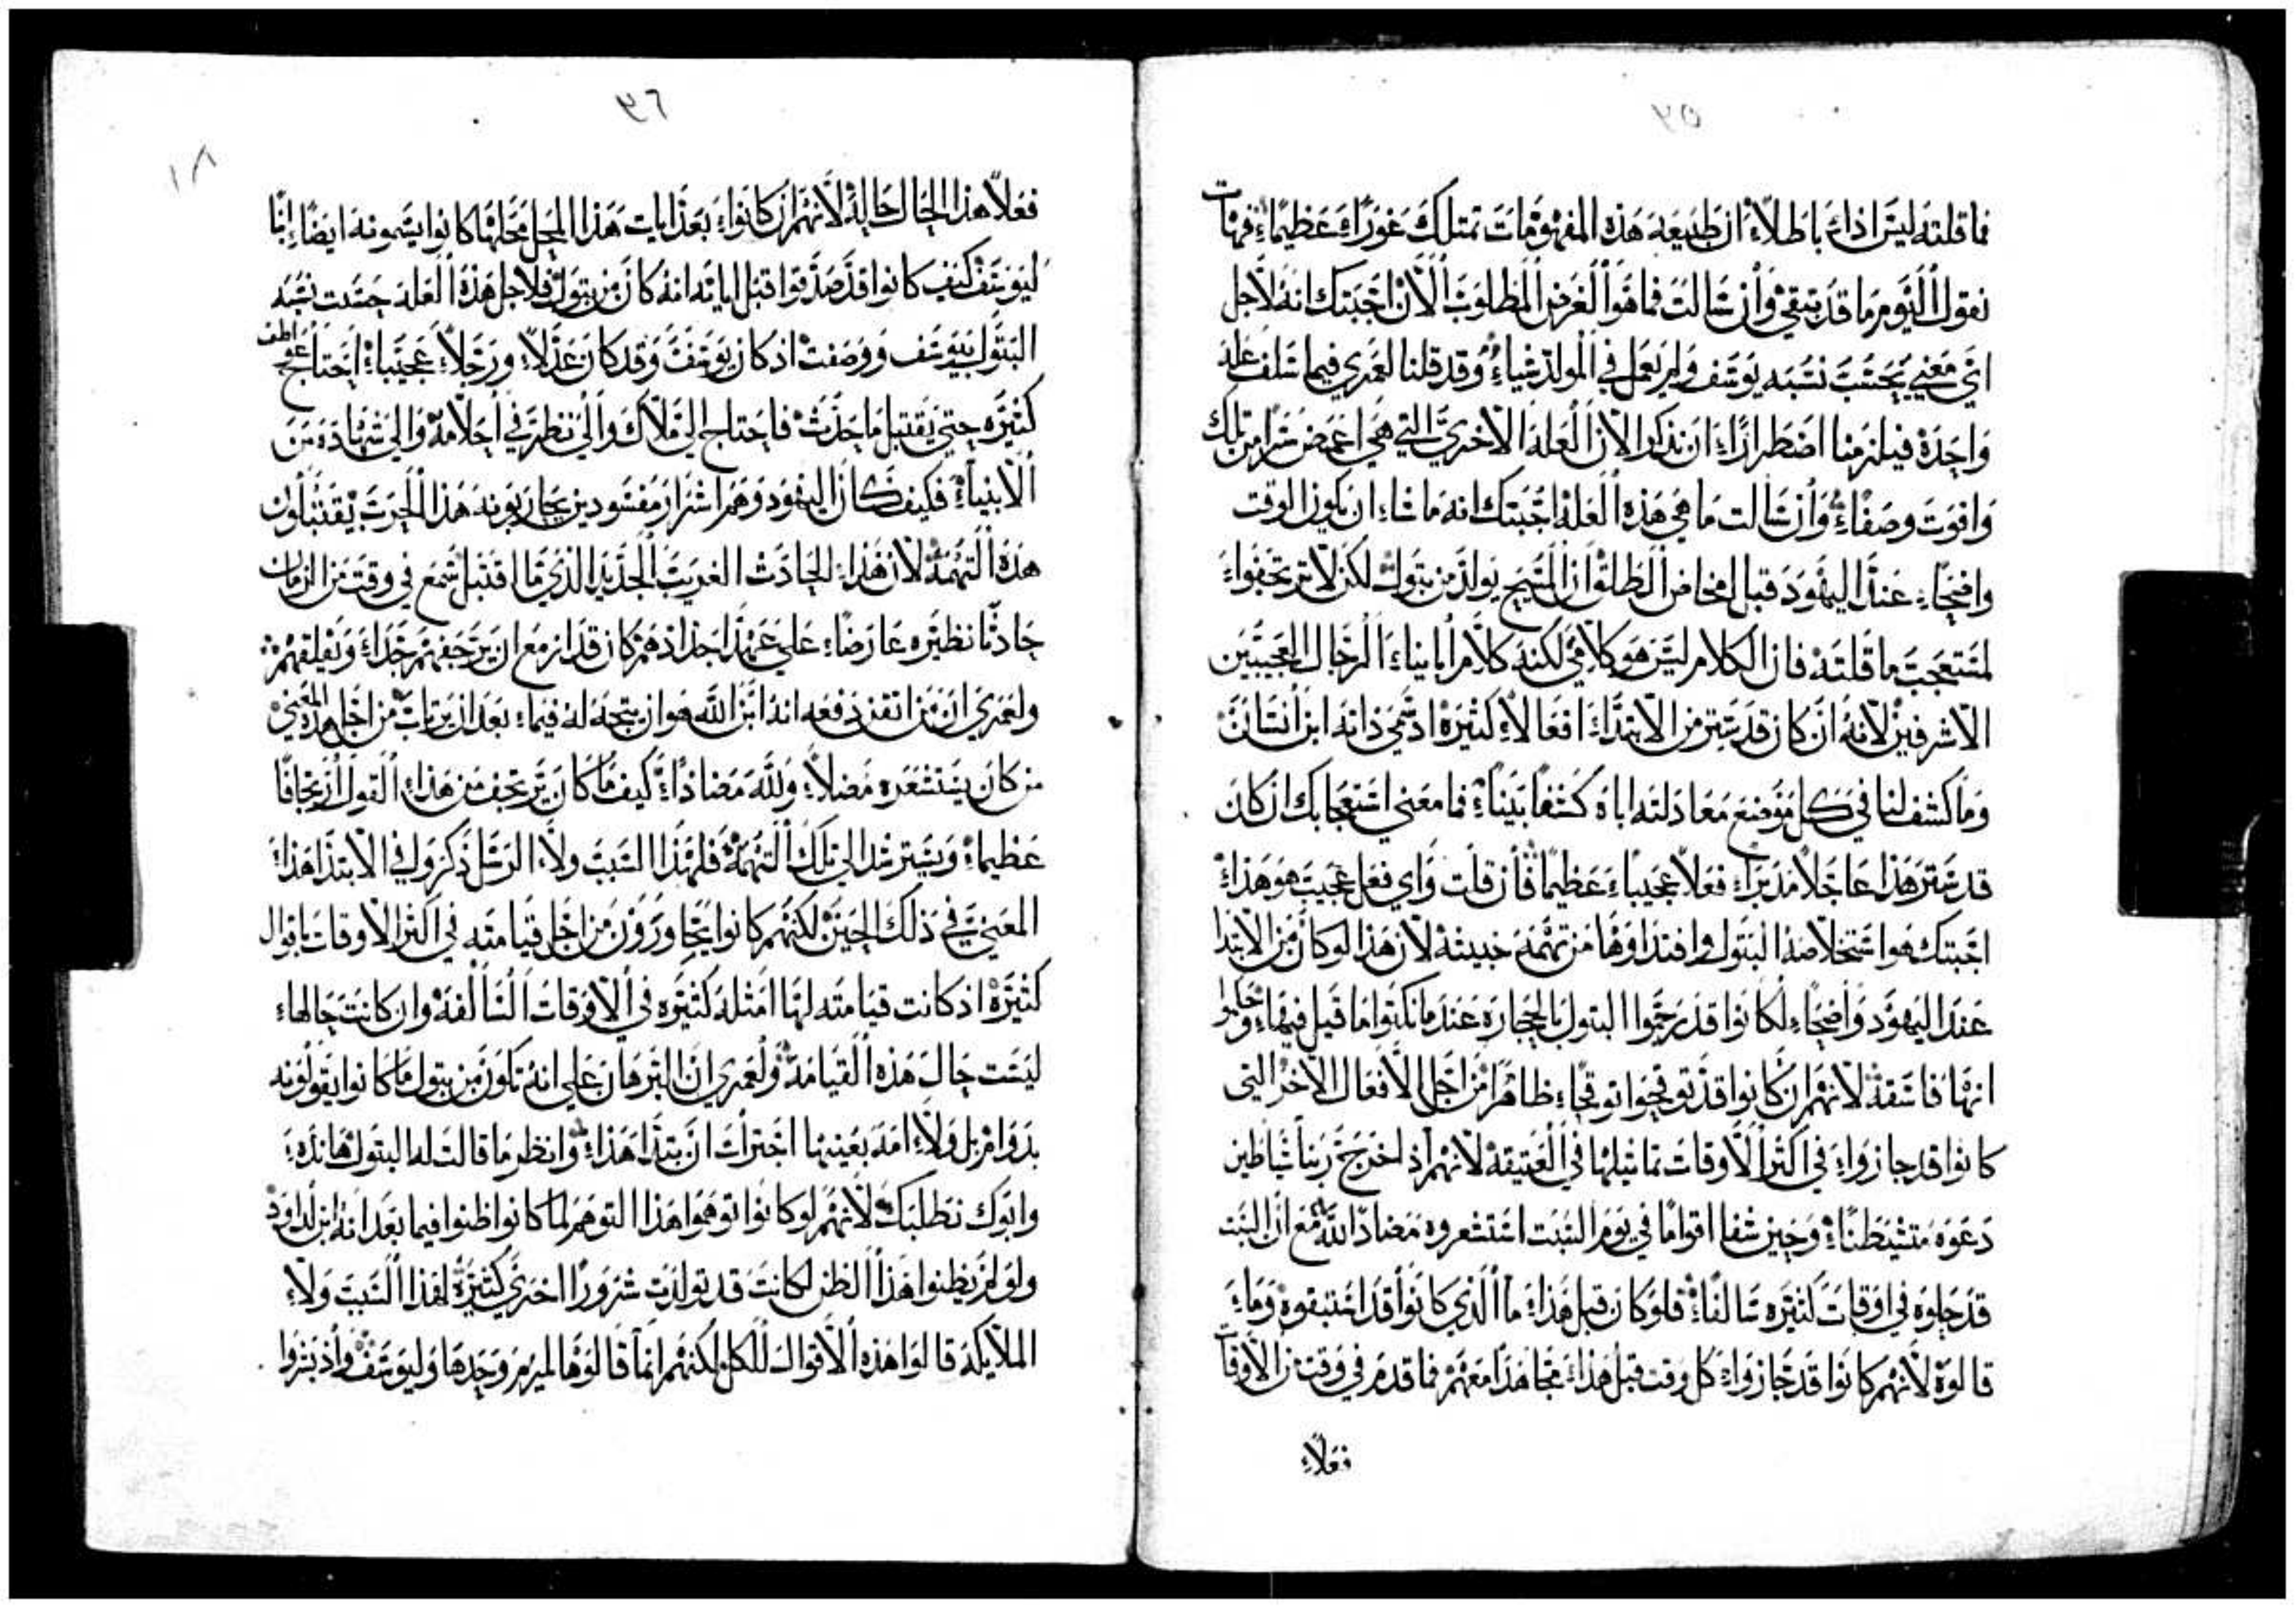 ٣٥
فما قلته ليس اذاً باطلاً ان طبيعه هذه المفهومات تمتلك غوراً عظيماً فهات
نقول اليوم ما قد تبقي وان سالت فما هو الغرض المطلوب الان اجبتك انه لاجل
اي معني يحسب نسبه يوسف ولم يعمل في المولد شياء وقد قلنا لعمري فيما سلف عله
واحدة فيلزمنا اضطراراً ان نذكر الان العله الاخري التي هي اغمض سراً من تلك
وافوت وصفاً وان سالت ما هي هذه العله اجبتك انه ما شاء ان يكون الوقت
واضحاً عند اليهود قبل امخاض الطلق ان المسيح يولد من بتول لكن لا ترتجفوا
لمستعجب ما قلته فان الكلام ليس هو كلامي لكنه كلام ابايناء الرجال العجيبين
الاشرفين لانه ان كان قد ستر من الابتداء افعالاً كثيرة اذ سمي ذاته ابن انسان
وما كشف لنا في كل موضع معادلته اباه كشفاً بيناً فما معني استعجابك ان كان
قد ستر هذا عاجلاً مدبراً فعلاً عجيباً عظيماً فان قلت واي فعل عجيب هو هذا
اجبتك هو استخلاصه البتول وافتداوها من تهمه خبيثه لان هذا لو كان من الابتدا
عند اليهود واضحاً لكانوا قد رجموا البتول بالحجاره عندما نكثوا ما قيل فيها وحكموا
انها فاسقه لانهم ان كانوا قد توقحوا توقحاً ظاهراً من اجل الافعال الاخر التي
كانوا قد حازوا في اكثر الاوقات تماثيلها في العتيقه لانهم اذ اخرج ربنا شياطين
دعوه متشيطناً وحين شفا اقواماً في يوم السبت استشعروه مضاداً لله مع ان السبت
قد حلوه في اوقات كثيره سالفاً فلو كان قبل هذا ما الذي كانوا قد استبقوه وما
قالوه لانهم كانوا قد حازوا كل وقت قبل هذا مجاهداً معهم فما قدم في وقت من الاوقات
فعلاً
٣٦
١٨
فعلاً هذا الحال حاله لانهم ان كانوا بعد ايات هذا المحل محلها كانوا يسمونه ايضاً ابناً
ليوسف كيف كانوا قد صدقوا قبل اياته انه كان من بتول فلاجل هذه العله حسبت نسبه
البتول بيوسف ووصفت اذ كان يوسف وقد كان عدلاً ورجلاً عجيباً احتاج عواطف
كثيره حتي يقتبل ما حدث فاحتاج الي ملاك والي نظر في احلامه والي شهاده من
الانبياء فكيف كان اليهود وهم اشرار مفسودين يحاربونه هذا الحرب يقتبلون
هذه التهمه لان هذا الحادث الغريب الجديد الذي ما اقتبل سمع في وقت من الزمان
حادثاً نظيره عارضاً علي عهد اجدادهم كان قد ازمع ان يرجفهم جداً ويقلقهم
ولعمري ان من اتقن دفعه انه ابن الله هو ان يتجه له فيما بعد ان يرتاب من اجل هذا المعني
من كان يستشعره مضلاً ولله مضاداً كيف ما كان يرتجف من هذا القول ارتجافاً
عظيماً ويسترشد الي تلك التهمه فلهذا السبب ولا الرسل ذكروا في الابتدا هذا
المعني في ذلك الحين لكنهم كانوا يتحاورون من اجل قيامته في اكثر الاوقات باقوال
كثيرة اذ كانت قيامته لها امثله كثيره في الاوقات السالفه وان كانت حالها
ليست حال هذه القيامه ولعمري ان البرهان علي انه تكون من بتول ما كانوا يقولونه
بدوام بل ولا امه بعينها اجترات ان بتدا هذا وانظر ما قالت له البتول ها نذه
وابوك نطلبك لانهم لو كانوا توهموا هذا التوهم لما كانوا ظنوا فيما بعد انه ابن لداود
ولو لم يظنوا هذا الظن لكانت قد تولدت شروراً اخري كثيرة لهذا السبب ولا
الملايكه قالوا هذه الاقوال للكل لكنهم انما قالوها لمريم وحدها وليوسف واذ بشروا